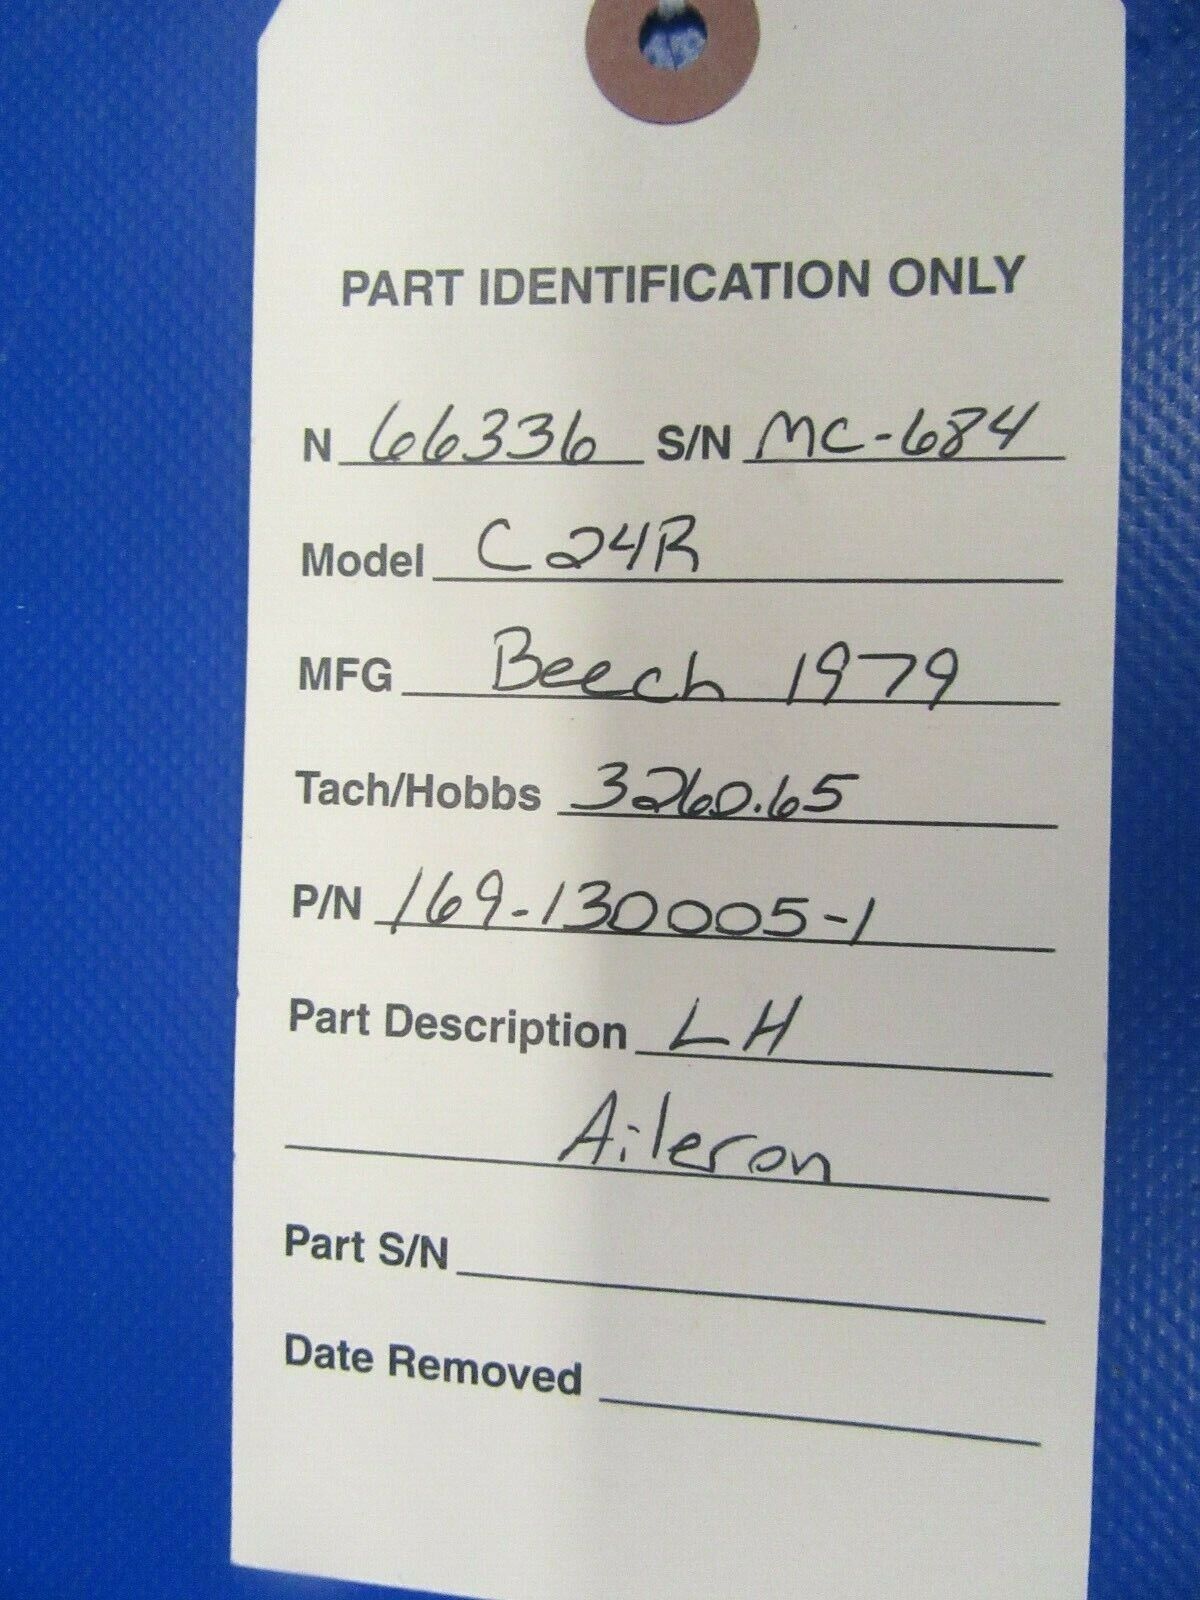 PART IDENTIFICATION ONLY
N 66336 S/N MC-684
Model C24R
MFG Beech 1979
Tach/Hobbs 3260.65
P/N 169-130005-1
Part Description LH
Aileron
Part S/N
Date Removed